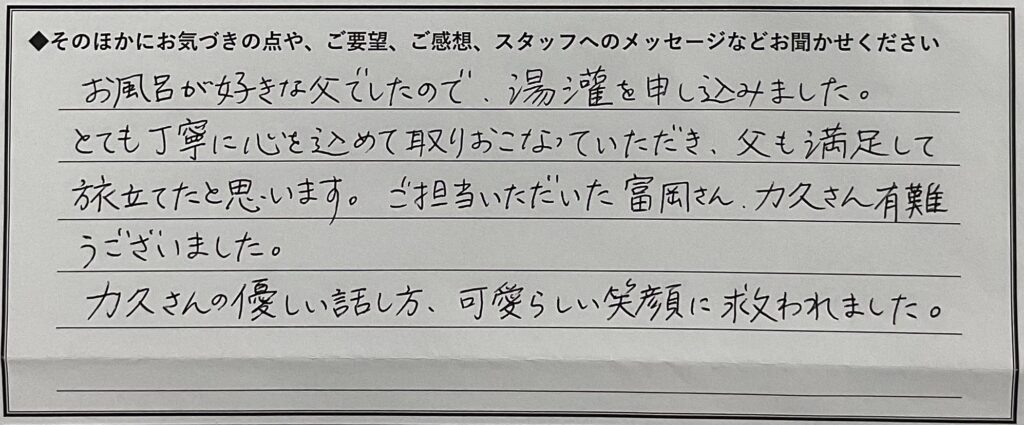 ◆そのほかにお気づきの点や、ご要望、ご感想、スタッフへのメッセージなどお聞かせください
お風呂が好きな父でしたので、湯灌を申し込みました。
とても丁寧に心を込めて取りおこなっていただき、父も満足して
旅立てたと思います。ご担当いただいた富岡さん、力久さん有難
うございました。
力久さんの優しい話し方、可愛らしい笑顔に救われました。